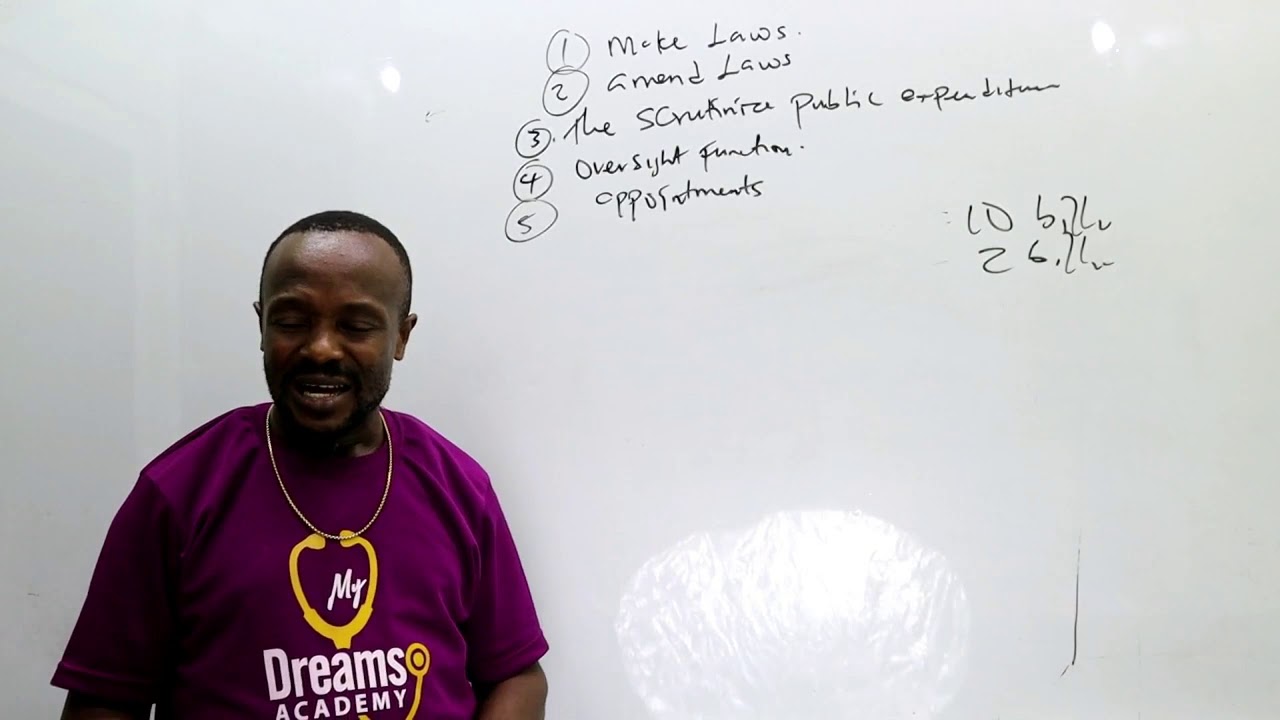 ① Make Laws.
② amend Laws
③. The Scrutinize public expenditure
④ Oversight function.
⑤ appointments
10 bill
2 bill
My
Dreams
ACADEMY